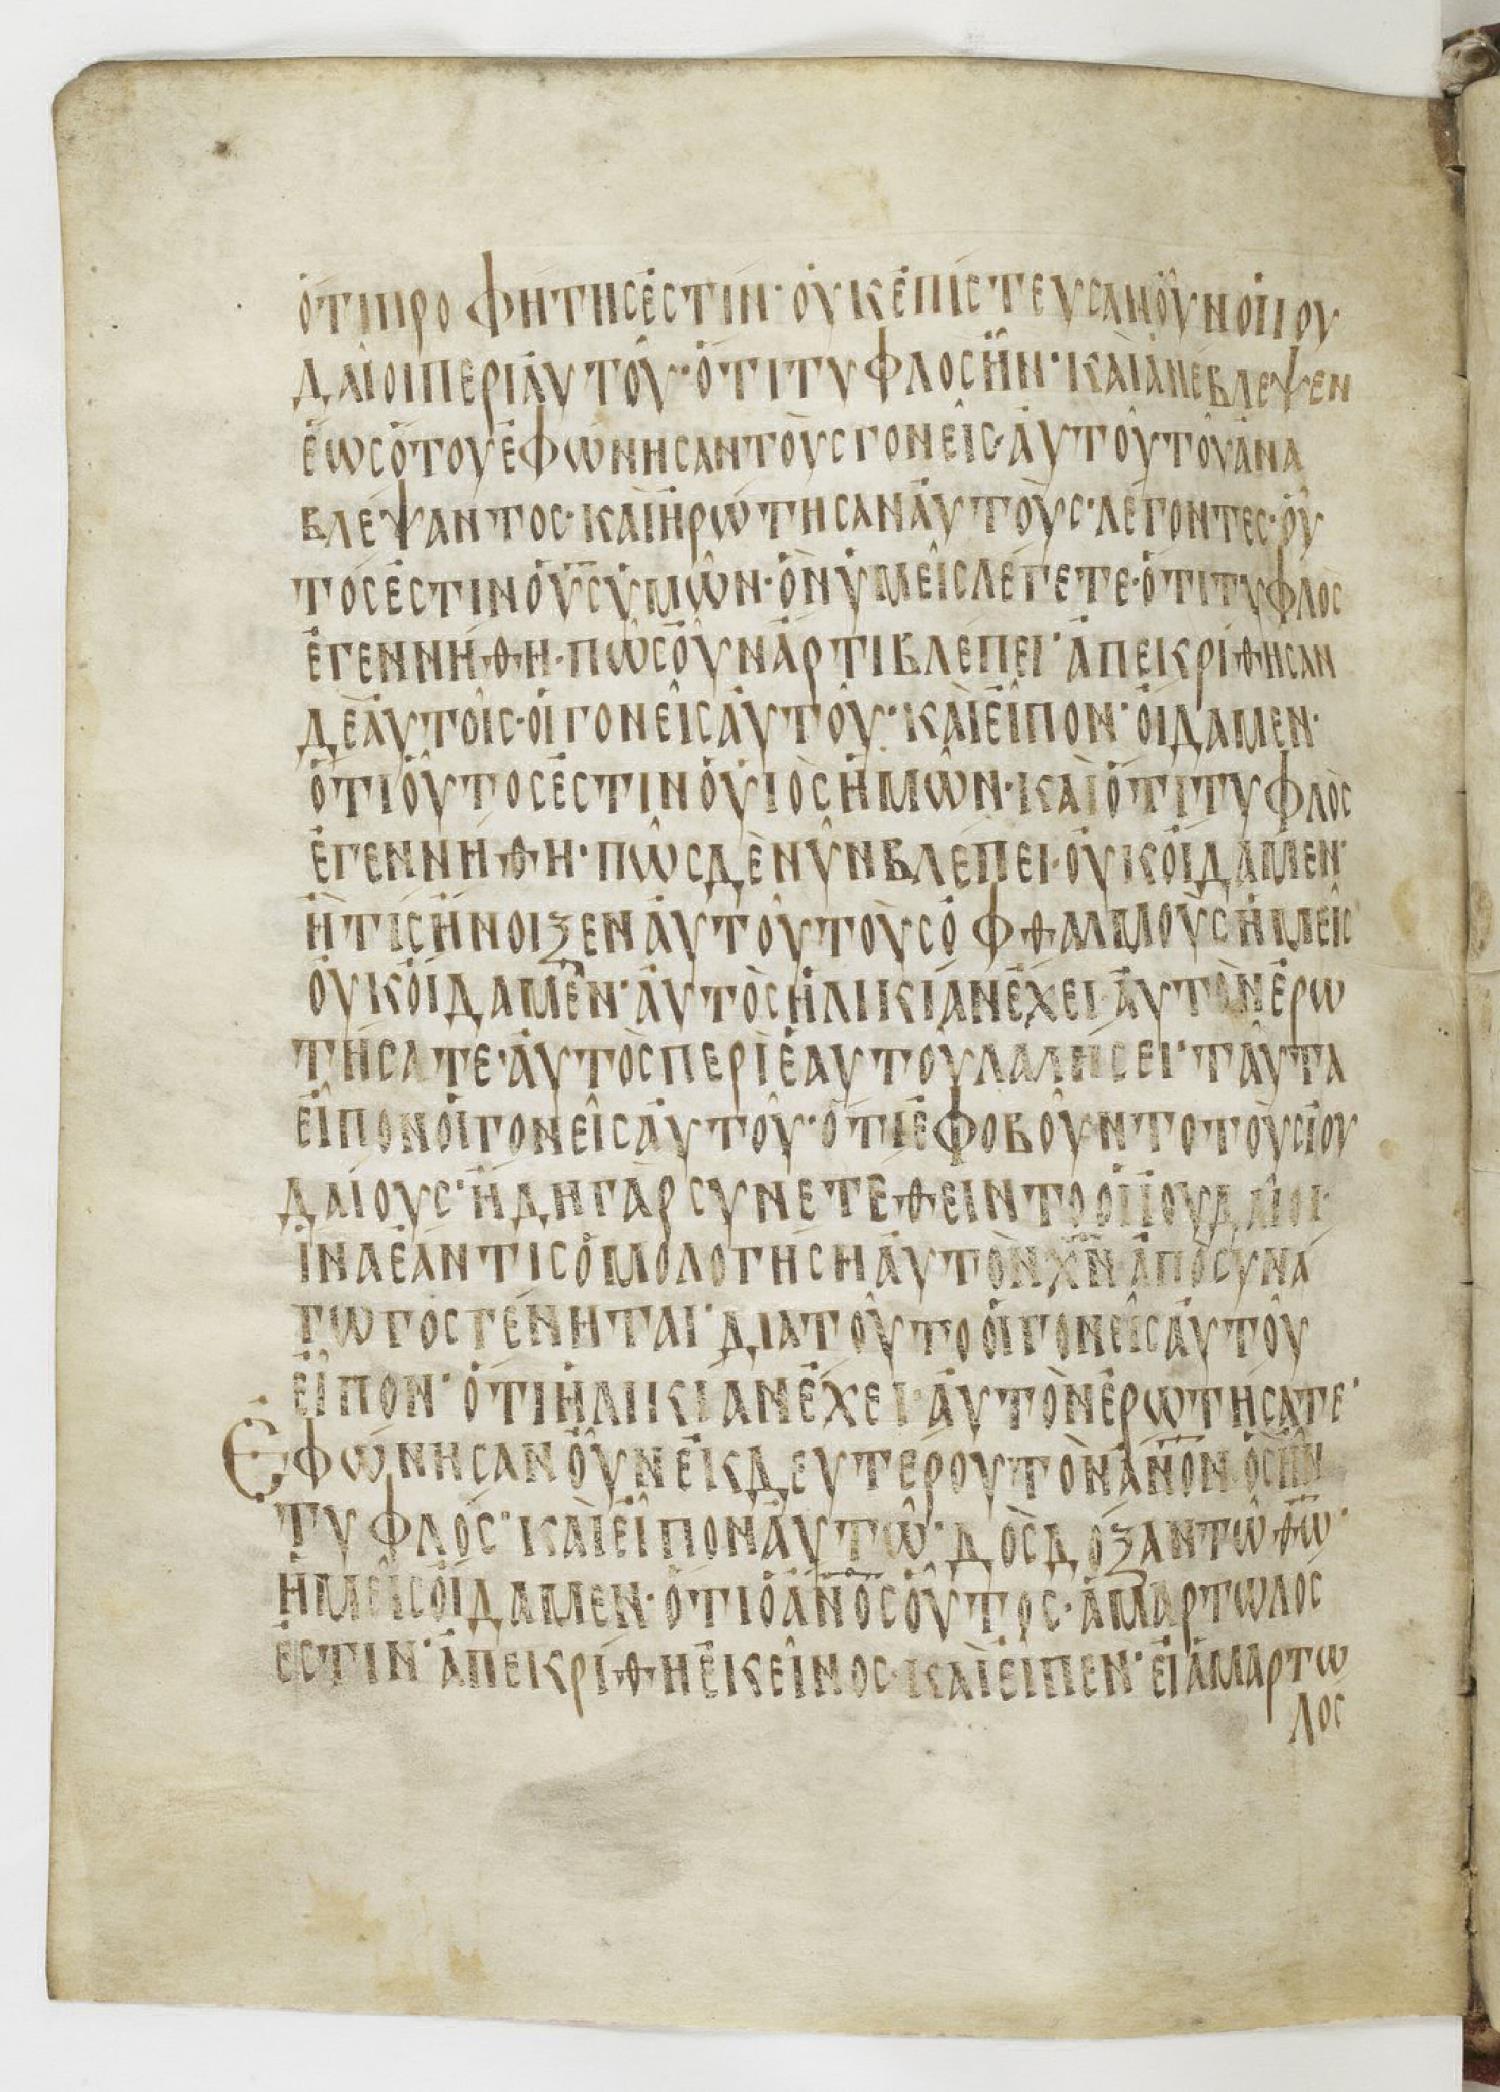 ὅτι προφήτης ἐστίν· οὐκ ἐπίστευσαν οὖν οἱ ἰου
δαῖοι περὶ αὐτοῦ· ὅτι τυφλὸς ἦν· καὶ ἀνέβλεψεν
ἕως ὅτου ἐφώνησαν τοὺς γονεῖς αὐτοῦ τοῦ ἀνα
βλέψαντος· καὶ ἠρώτησαν αὐτοὺς· λέγοντες· οὗ
τός ἐστιν ὁ υ̅ς̅ ὑμῶν· ὃν ὑμεῖς λέγετε· ὅτι τυφλὸς
ἐγεννήθη· πῶς οὖν ἄρτι βλέπει· ἀπεκρίθησαν
δὲ αὐτοῖς· οἱ γονεῖς αὐτοῦ· καὶ εἶπον· οἴδαμεν·
ὅτι οὗτος ἐστὶν ὁ υἱὸς ἡμῶν· καὶ ὅτι τυφλὸς
ἐγεννήθη· πῶς δὲ νῦν βλέπει· οὐκ οἴδαμεν·
ἢ τίς ἤνοιξεν αὐτοῦ τοὺς ὀφθαλμοὺς ἡμεῖς
οὐκ οἴδαμεν· αὐτὸς ἡλικίαν ἔχει· αὐτὸν ἐρω
τήσατε· αὐτὸς περὶ ἑαυτοῦ λαλήσει· ταῦτα
εἶπον οἱ γονεῖς αὐτοῦ· ὅτι ἐφοβοῦντο τοὺς ἰου
δαίους· ἤδη γὰρ συνετέθειντο οἱ ἰουδαῖοι·
ἵνα ἐάν τις ὁμολογήσῃ αὐτὸν χ̅ν̅· ἀποσυνά
γωγος γένηται· διὰ τοῦτο οἱ γονεῖς αὐτοῦ
εἶπον· ὅτι ἡλικίαν ἔχει· αὐτὸν ἐρωτήσατε·
Ἐφώνησαν οὖν ἐκ δευτέρου τὸν α̅ν̅ο̅ν̅ ὃς ἦν
τυφλός· καὶ εἶπον αὐτῶ· δὸς δόξαν τῶ θ̅ω̅·
ἡμεῖς οἴδαμεν· ὅτι ὁ α̅ν̅ο̅ς̅ οὗτος· ἁμαρτωλός
ἐστιν· ἀπεκρίθη ἐκεῖνος· καὶ εἶπεν· εἰ ἁμαρτω
λὸς